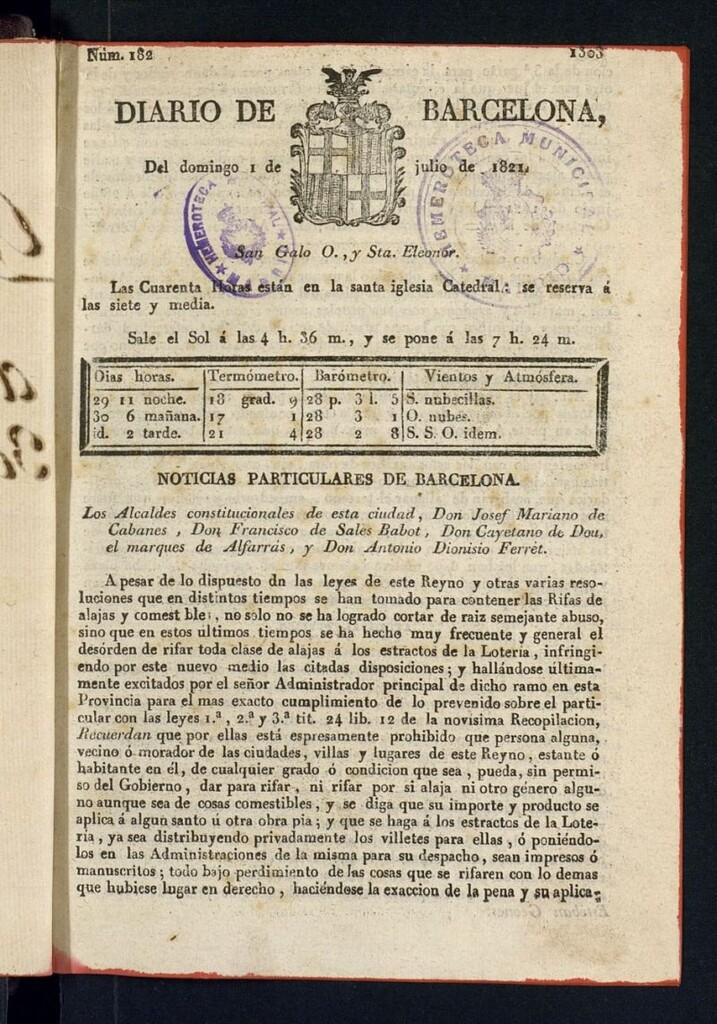 Núm. 182 1303
DIARIO DE BARCELONA,
Del domingo 1 de julio de 1821.
HEMEROTECA MUNICIPAL
HEMEROTECA
San Galo O., y Sta. Eleonor.
Las Cuarenta Horas están en la santa iglesia Catedral: se reserva á
las siete y media.
Sale el Sol á las 4 h. 36 m., y se pone á las 7 h. 24 m.
Dias horas. Termómetro. Barómetro. Vientos y Atmósfera.
29 11 noche. 18 grad. 9 28 p. 3 l. 5 S. nubecillas.
30 6 mañana. 17 1 28 3 1 O. nubes.
id. 2 tarde. 21 4 28 2 8 S. S. O. idem.
NOTICIAS PARTICULARES DE BARCELONA.
Los Alcaldes constitucionales de esta ciudad, Don Josef Mariano de
Cabanes, Don Francisco de Sales Babot, Don Cayetano de Dou,
el marques de Alfarrás, y Don Antonio Dionisio Ferrét.
A pesar de lo dispuesto dn las leyes de este Reyno y otras varias reso-
luciones que en distintos tiempos se han tomado para contener las Rifas de
alajas y comest bles, no solo no se ha logrado cortar de raiz semejante abuso,
sino que en estos últimos tiempos se ha hecho muy frecuente y general el
desórden de rifar toda clase de alajas á los estractos de la Lotería, infringi-
endo por este nuevo medio las citadas disposiciones; y hallándose última-
mente excitados por el señor Administrador principal de dicho ramo en esta
Provincia para el mas exacto cumplimiento de lo prevenido sobre el parti-
cular con las leyes 1.ª, 2.ª y 3.ª tit. 24 lib. 12 de la novísima Recopilacion,
Recuerdan que por ellas está espresamente prohibido que persona alguna,
vecino ó morador de las ciudades, villas y lugares de este Reyno, estante ó
habitante en él, de cualquier grado ó condicion que sea, pueda, sin permi-
so del Gobierno, dar para rifar, ni rifar por si alaja ni otro género algu-
no aunque sea de cosas comestibles, y se diga que su importe y producto se
aplica á algun santo ú otra obra pia; y que se haga á los estractos de la Lote-
ría, ya sea distribuyendo privadamente los villetes para ellas, ó poniéndo-
los en las Administraciones de la misma para su despacho, sean impresos ó
manuscritos; todo bajo perdimiento de las cosas que se rifaren con lo demas
que hubiese lugar en derecho, haciéndose la exaccion de la pena y su aplica-